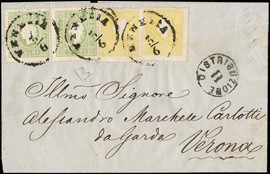 VENEZIA
VENEZIA
VENEZIA
DISTRIBUZIONE
II
Illmo Signore
Alessandro Marchese Carlotti
da Garda
Verona